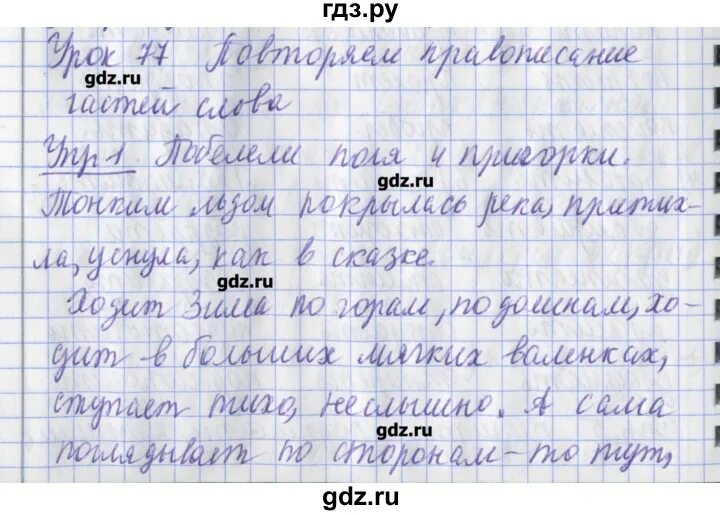 гдз.ру
Урок 77 Повторяем правописание
gdz.ru
частей слова
Упр 1. Побелели поля и пригорки.
gdz.ru
Тонким льдом покрылась река, притих-
ла, уснула, как в сказке.
gdz.ru
Ходит Зима по горам, по долинам, хо-
дит в больших мягких валенках,
ступает тихо, неслышно. А сама
gdz.ru
поглядывает по сторонам - то тут,
gdz.ru